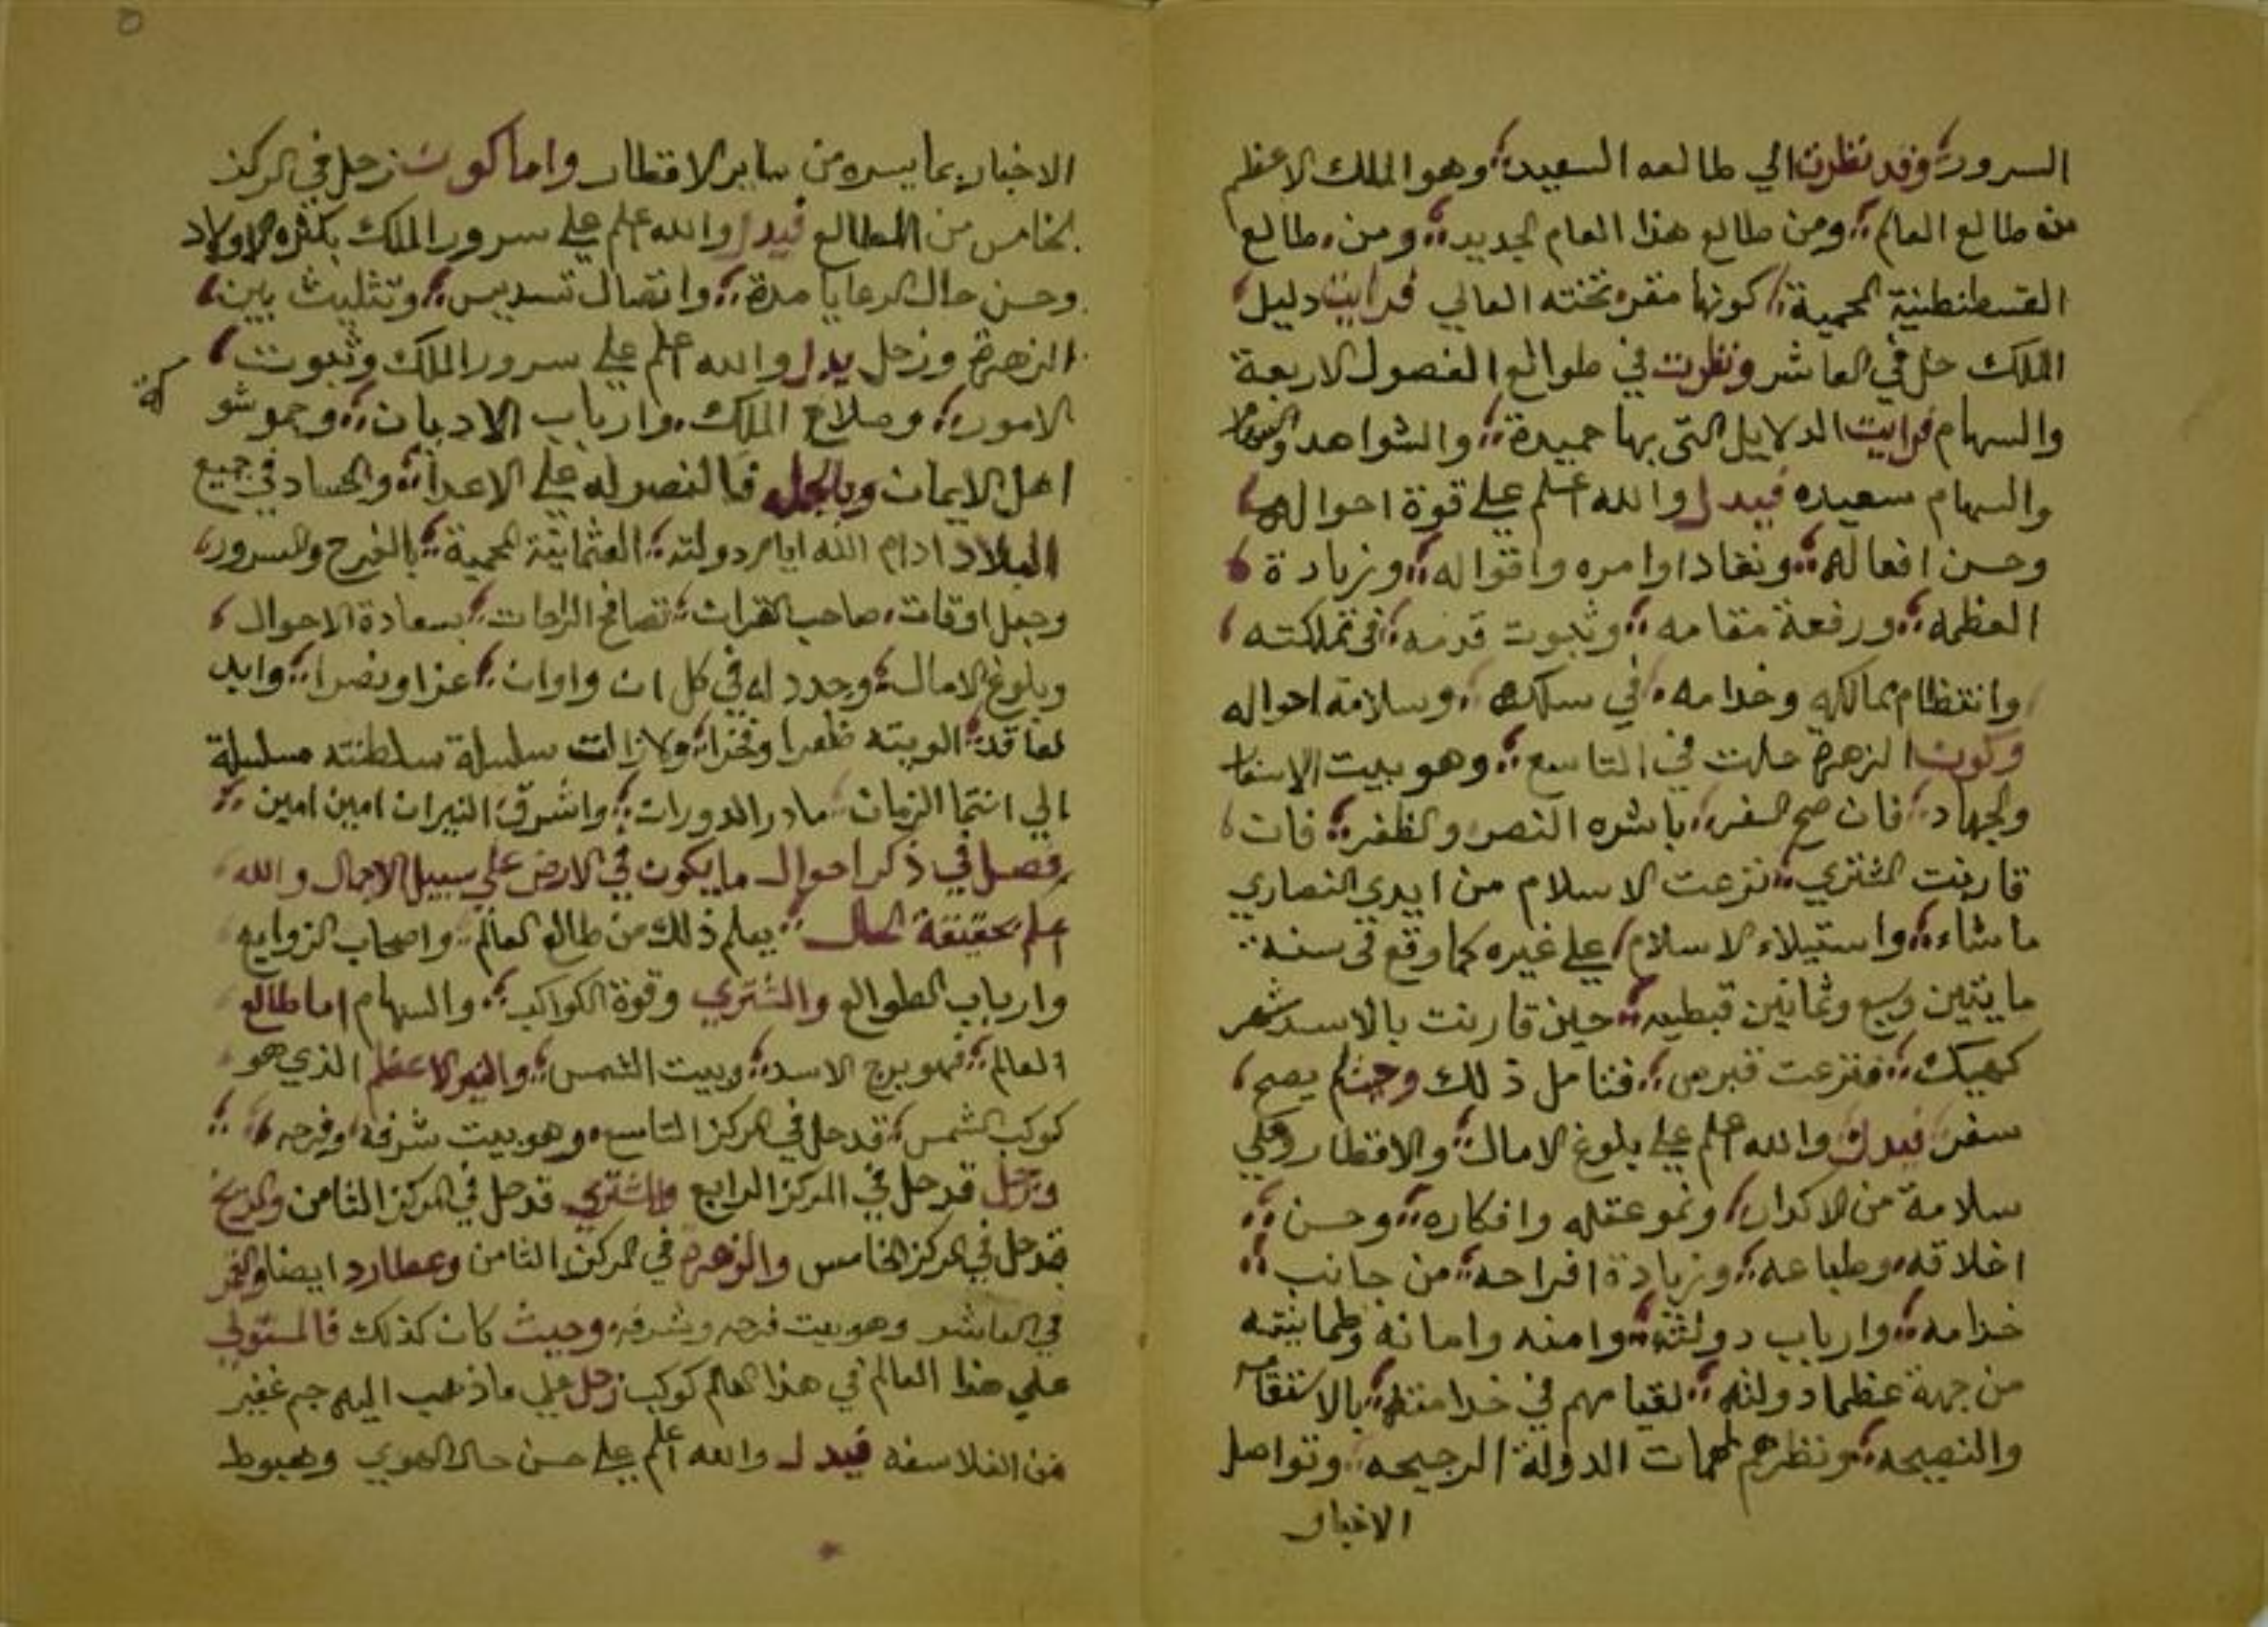 السرور وقد نظرت الي طالعه السعيد وهو الملك الاعظم
من طالع العالم ومن طالع هذا العام الجديد ومن طالع
القسطنطنية المحمية كونها مقر تخته العالي فرايت دليل
الملك حل في العاشر ونظرت في طوالع الفصول الاربعة
والسهام فرايت الدلايل التي بها حميدة والشواهد
والسهام سعيده فيدل والله اعلم علي قوة احواله
وحسن افعاله ونفاد اوامره واقواله وزيادة
العظمه ورفعة مقامه وثبوت قدمه في تملكته
وانتظام ممالكه وخدامه في سلكه وسلامة احواله
وكون الزهرة حلت في التاسع وهو بيت الاسفار
والجهاد فان صح السفر باشره النصر والظفر فان
قارنت المشتري نزعت الاسلام من ايدي النصاري
ماشاء واستيلاء الاسلام علي غيره كما وقع في سنة
مايتين وسبع وثمانين قبطيه حين قارنت بالاسد شهر
كهيك فنزعت قبرص فتامل ذلك وحيث لم يصح
سفر فيدل والله اعلم علي بلوغ الامال والاقطار وعلي
سلامة من الاكدار ونمو عقله وافكاره وحسن
اخلاقه وطباعه وزيادة افراحه من جانب
خدامه وارباب دولته وامنه وامانه وطمانينته
من جهة عظما دولته لقيامهم في خدامته بالاستقامه
والنصيحه ونظرهم لمهمات الدولة الرجيحه وتواصل
الاخبار
الاخبار بما يسره من ساير الاقطار واما كون زحل في المركز
الخامس من الطالع فيدل والله اعلم علي سرور الملك بكثرة الاولاد
وحسن حال الرعايا مدة واتصال تسديس وتثليث بين
الزهرة وزحل يدل والله اعلم علي سرور الملك وثبوت
الامور وصلاح الملك وارباب الاديان وجموشو
كة
اهل الايمان وبالجمله فالنصر له علي الاعدا والحساد في جميع
البلاد ادام الله ايام دولته العثمانية المحمية بالفرح والسرور
وجعل اوقات صاحب القران تصافح الراحات بسعادة الاحوال
وبلوغ الامال وجدد له في كل ان واوان عزا ونصرا وايد
لعاقد الويته ظفرا وفخرا ولا زالت سلسلة سلطنته مسلسلة
الي انتها الزمان ما در الدوران واشرق النيران امين امين
فصل في ذكر احوال ما يكون في الارض علي سبيل الاجمال والله
اعلم بحقيقة الحال يعلم ذلك من طالع العالم واصحاب الزوايع
وارباب الطوالع والمشتري وقوة الكواكب والسهام اما طالع
العالم فهو برج الاسد وبيت الشمس والنير الاعظم الذي هو
كوكب الشمس قد حل في المركز التاسع وهو بيت شرفه وفرحه
وزحل قد حل في المركز الرابع والمشتري قد حل في المركز الثامن والمريخ
قد حل في المركز الخامس والزهرة في المركز الثامن وعطارد ايضا والقمر
في العاشر وهو بيت فرحه وشرفه وحيث كان كذلك فالمستولي
علي هذا العالم في هذا العام كوكب زحل علي ما ذهب اليه جم غفير
من الفلاسفه فيدل والله اعلم علي حسن حال الهوي وهبوط